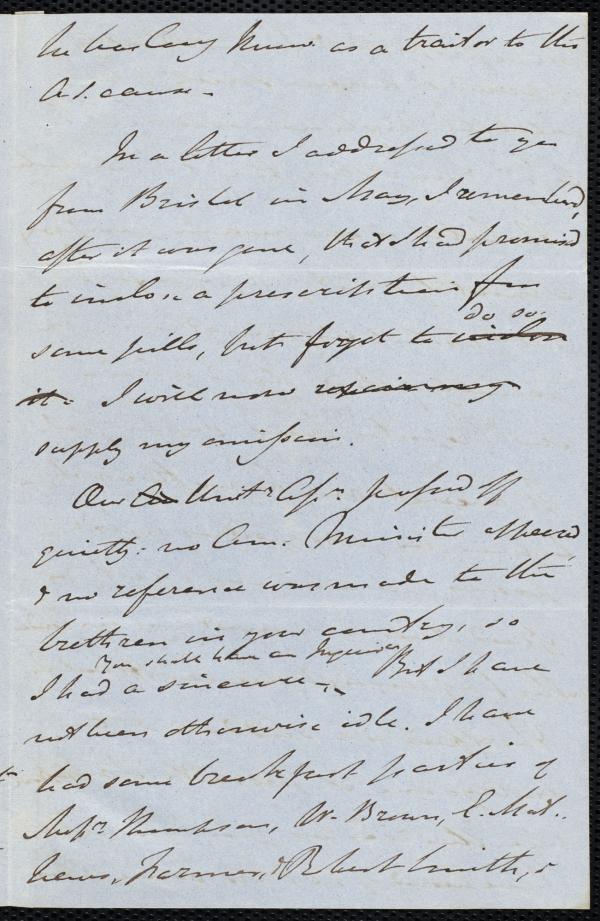 he has long known as a traitor to the
A. S. cause -
In a letter I addressed to you
from Bristol in May, I remembered,
after it was gone, that I had promised
to inclose a prescription for
some pills, but forgot to inclose do so.
it. I will now
supply my omission.
Our Unitn Assn passed off
quietly: no Am. Minister appeared
& no reference was made to the
brethren in your country, so
You shall have an Inquirer
I had a sinecure -. But I have
not been otherwise idle. I have
had some breakfast parties of
Messrs Thompson, W. Brown, C. Mat-
hews, Farmer, & Robert Smith, &